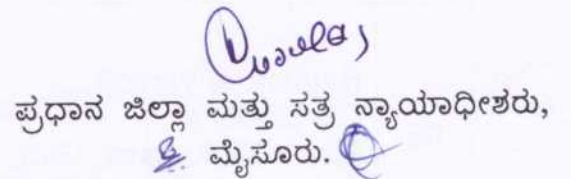 ಪ್ರಧಾನ ಜಿಲ್ಲಾ ಮತ್ತು ಸತ್ರ ನ್ಯಾಯಾಧೀಶರು,
ಮೈಸೂರು.